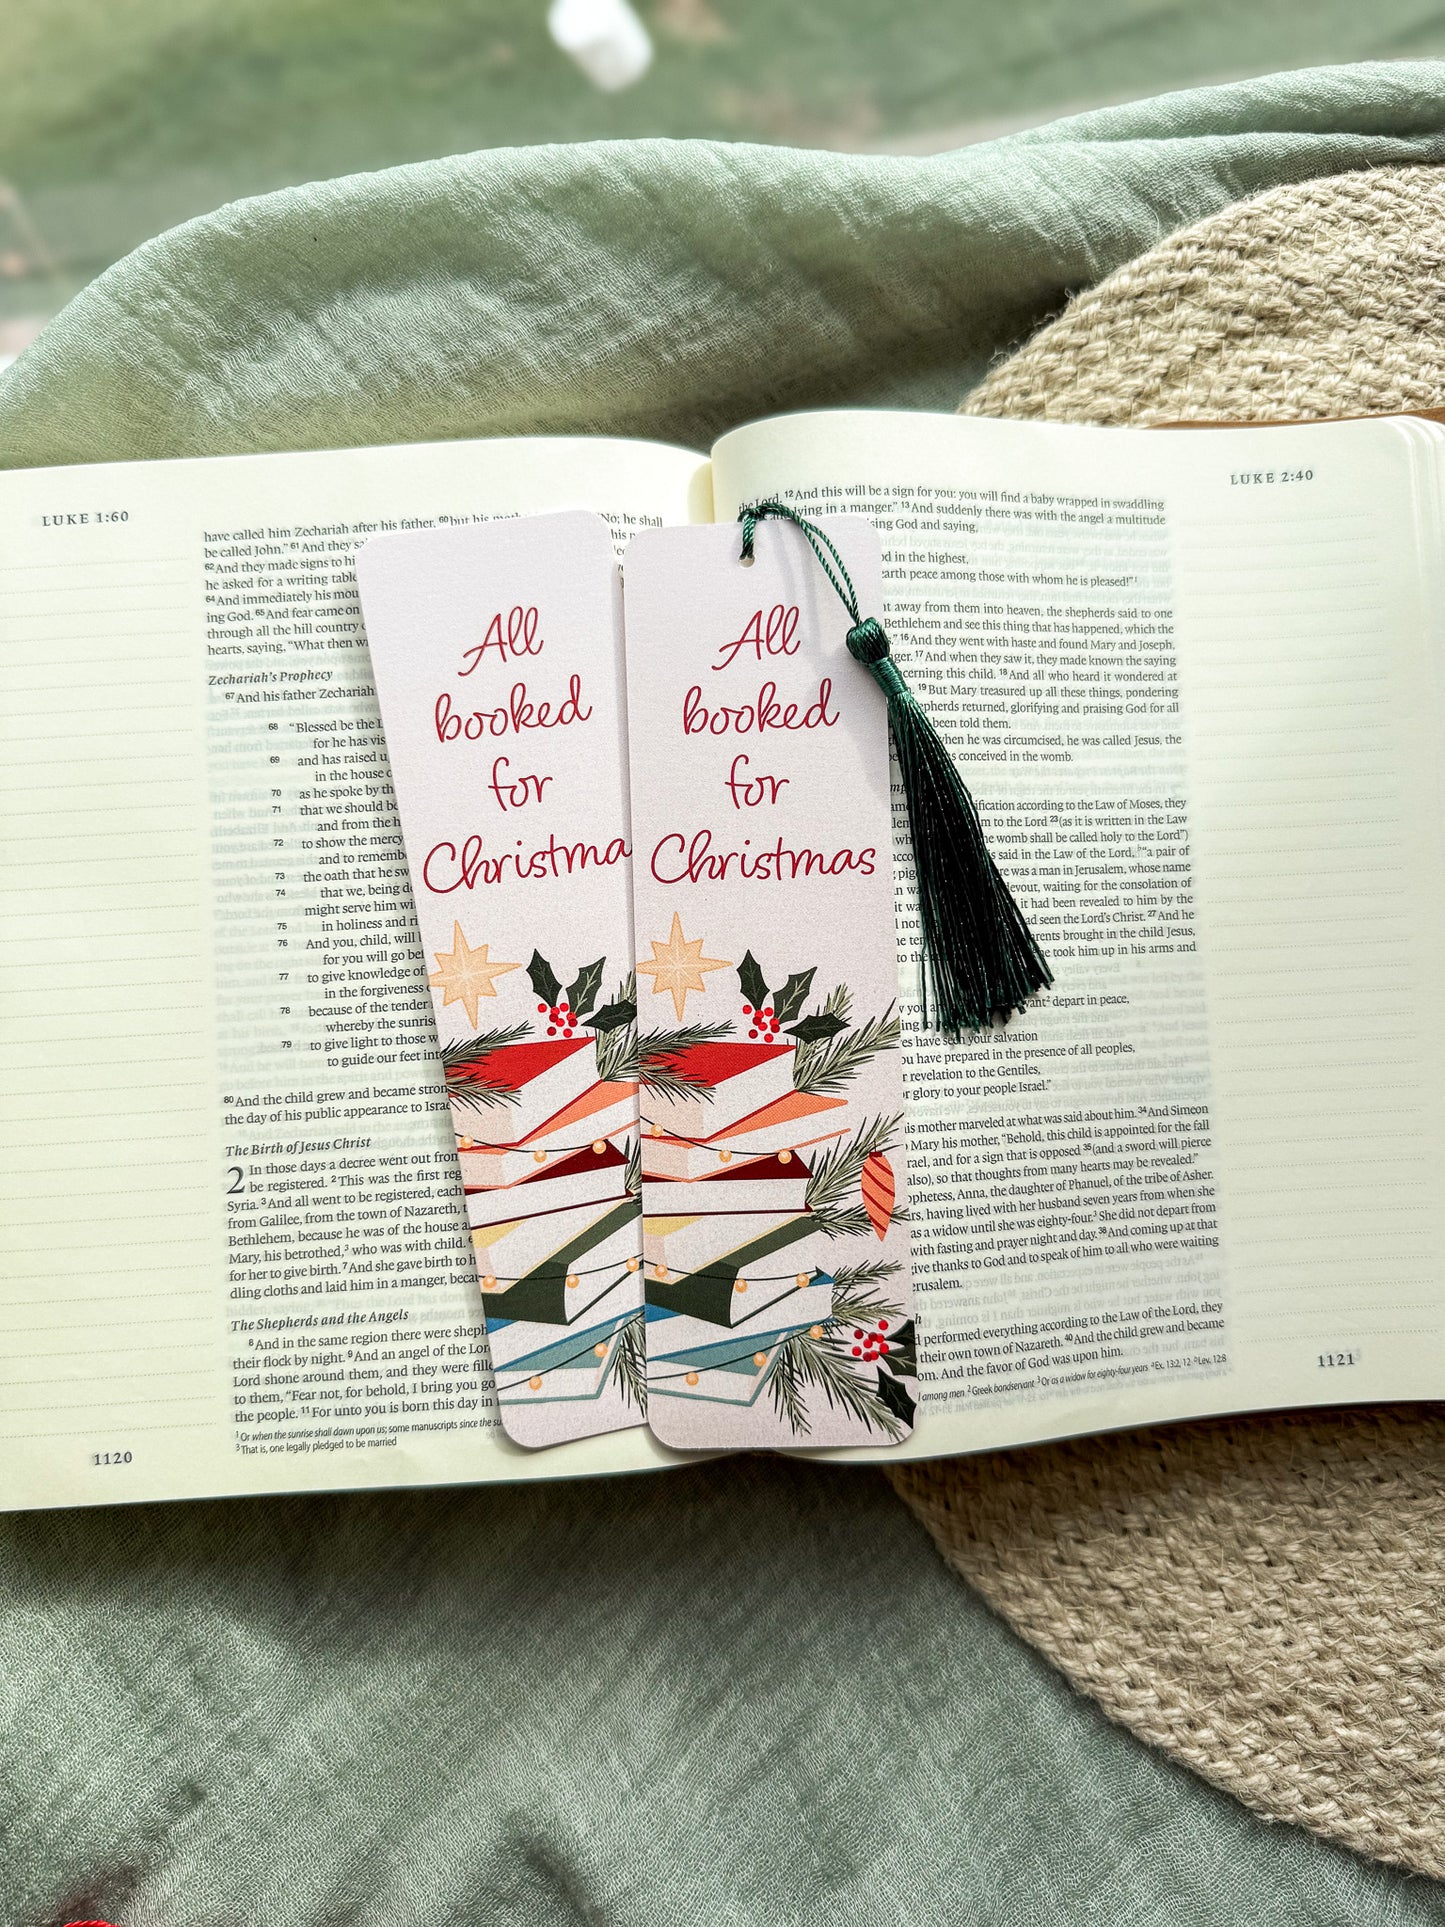 LUKE 1:60
have called him Zechariah after his father, 60 but his No; he shall
be called John." 61 And they
62 And they made signs to
he asked for a writing
64 And immediately his
ing God. 65 And fear came on
through all the hill country
hearts, saying, "What then
Zechariah's Prophecy
67 And his father Zechariah
68 "Blessed be the
for he has
69 and has raised
in the house
70 as he spoke by
71 that we should
and from the
72 to show the mercy
and to
73 the oath that he
74 that we, being
might serve him
75 in holiness and
76 And you, child, will
for you will go
77 to give knowledge of
in the forgiveness
78 because of the tender
whereby the
79 to give light to those
to guide our feet
80 And the child grew and became
the day of his public appearance to
The Birth of Jesus Christ
2 In those days a decree went out
be registered. 2 This was the first
Syria. 3 And all went to be registered, each
from Galilee, from the town of Nazareth,
Bethlehem, because he was of the house
Mary, his betrothed,3 who was with child.
for her to give birth. 7 And she gave birth to
dling cloths and laid him in a manger,
The Shepherds and the Angels
8 And in the same region there were
their flock by night. 9 And an angel of the
Lord shone around them, and they were
to them, "Fear not, for behold, I bring you
the people. 11 For unto you is born this day in
1 Or when the sunrise shall dawn upon us; some manuscripts since the
3 That is, one legally pledged to be married
1120
All
booked
for
All
booked
for
Christmas
LUKE 2:40
the Lord. 12 And this will be a sign for you: you will find a baby wrapped in swaddling
lying in a manger." 13 And suddenly there was with the angel a multitude
God and saying,
in the highest,
peace among those with whom he is pleased!"1
away from them into heaven, the shepherds said to one
Bethlehem and see this thing that has happened, which the
16 And they went with haste and found Mary and Joseph,
17 And when they saw it, they made known the saying
this child. 18 And all who heard it wondered at
19 But Mary treasured up all these things, pondering
returned, glorifying and praising God for all
been told them.
when he was circumcised, he was called Jesus, the
conceived in the womb.
according to the Law of Moses, they
to the Lord 23 (as it is written in the Law
the womb shall be called holy to the Lord")
said in the Law of the Lord, "a pair of
was a man in Jerusalem, whose name
devout, waiting for the consolation of
it had been revealed to him by the
seen the Lord's Christ. 27 And he
brought in the child Jesus,
took him up in his arms and
depart in peace,
have seen your salvation
you have prepared in the presence of all peoples,
revelation to the Gentiles,
glory to your people Israel."
his mother marveled at what was said about him. 34 And Simeon
Mary his mother, "Behold, this child is appointed for the fall
and for a sign that is opposed 35 (and a sword will pierce
also), so that thoughts from many hearts may be revealed."
Anna, the daughter of Phanuel, of the tribe of Asher.
having lived with her husband seven years from when she
as a widow until she was eighty-four.3 She did not depart from
with fasting and prayer night and day. 38 And coming up at that
give thanks to God and to speak of him to all who were waiting
performed everything according to the Law of the Lord, they
their own town of Nazareth. 40 And the child grew and became
And the favor of God was upon him.
among men. 2 Greek bondservant 3 Or as a widow for eighty-four years
1121